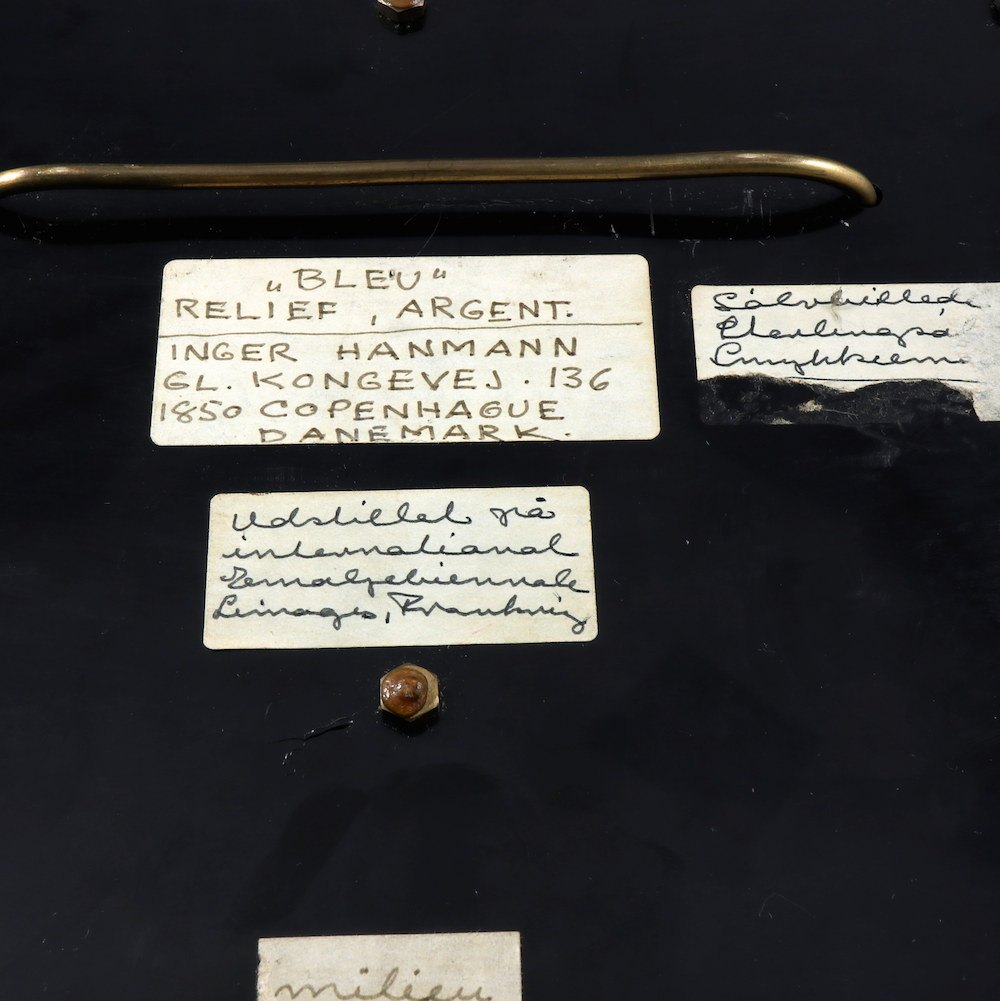 „BLEU"
RELIEF, ARGENT.
INGER HANMANN
GL. KONGEVEJ. 136
1850 COPENHAGUE
DANEMARK.
Udstillet på
international
Emaljebiennale
Limoges, Frankrig
Sølvbilled
milieu